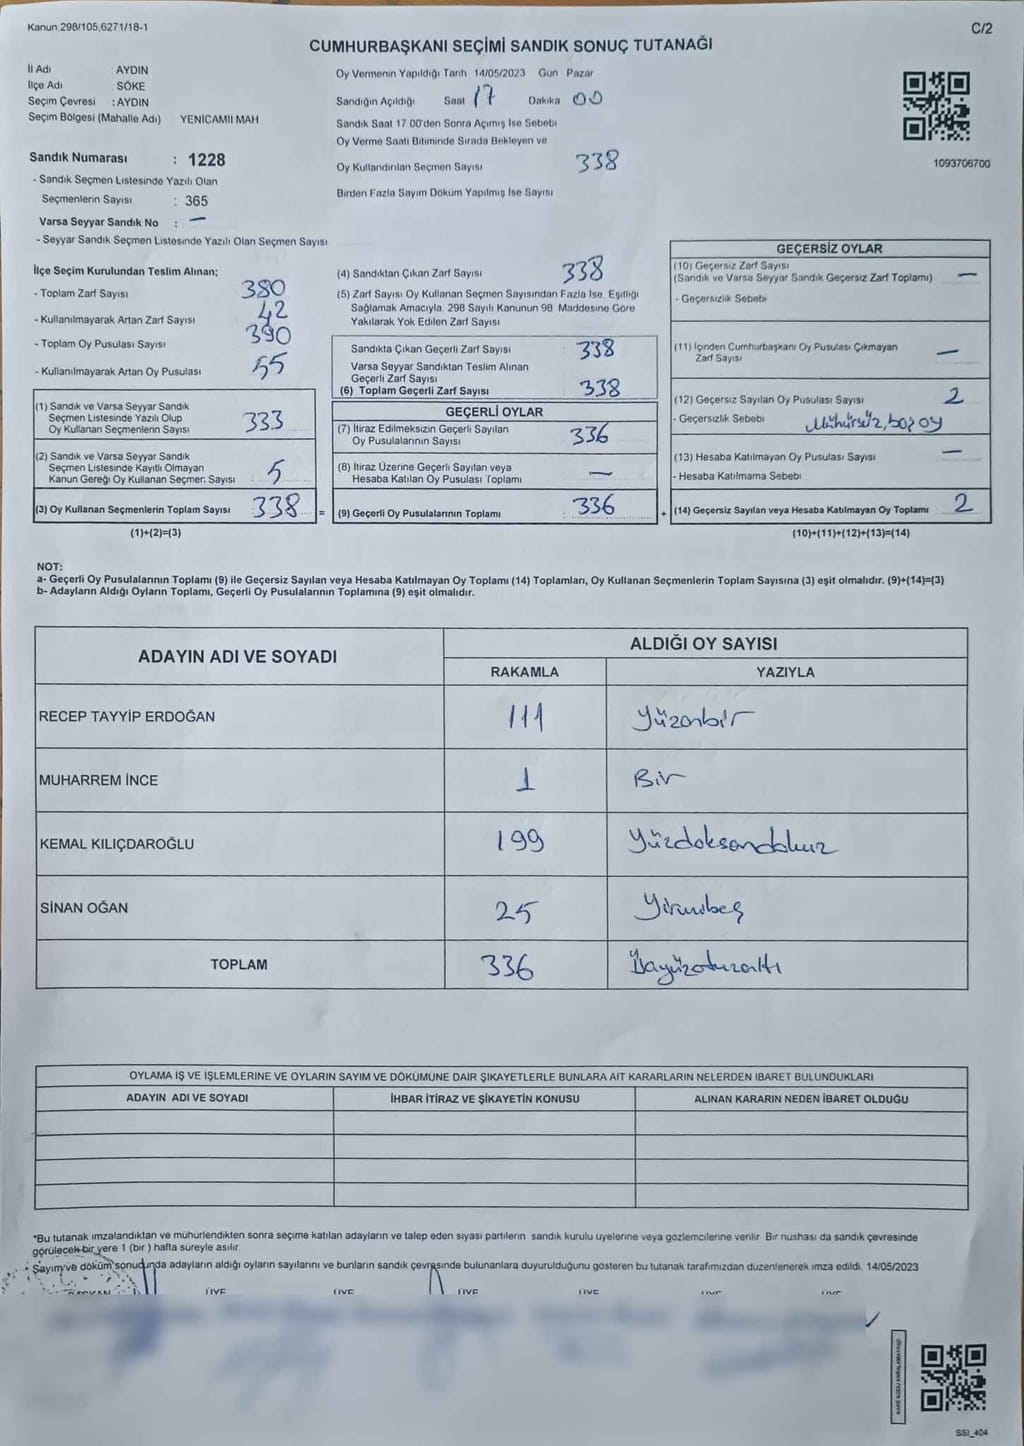 Kanun 298/105,6271/18-1
C/2
CUMHURBAŞKANI SEÇİMİ SANDIK SONUÇ TUTANAĞI
İl Adı AYDIN
İlçe Adı SÖKE
Seçim Çevresi : AYDIN
Seçim Bölgesi (Mahalle Adı) YENICAMII MAH
Sandık Numarası : 1228
- Sandık Seçmen Listesinde Yazılı Olan
Seçmenlerin Sayısı : 365
Varsa Seyyar Sandık No : —
- Seyyar Sandık Seçmen Listesinde Yazılı Olan Seçmen Sayısı
Oy Vermenin Yapıldığı Tarih 14/05/2023 Gün Pazar
Sandığın Açıldığı Saat 17 Dakika 00
Sandık Saat 17 00'den Sonra Açımış İse Sebebi
Oy Verme Saati Bitiminde Sırada Bekleyen ve
Oy Kullandırılan Seçmen Sayısı 338
Birden Fazla Sayım Döküm Yapılmış İse Sayısı
1093706700
İlçe Seçim Kurulundan Teslim Alınan;
- Toplam Zarf Sayısı 380
- Kullanılmayarak Artan Zarf Sayısı 42
- Toplam Oy Pusulası Sayısı 390
- Kullanılmayarak Artan Oy Pusulası 55
(1) Sandık ve Varsa Seyyar Sandık
Seçmen Listesinde Yazılı Olup
Oy Kullanan Seçmenlerin Sayısı 333
(2) Sandık ve Varsa Seyyar Sandık
Seçmen Listesinde Kayıtlı Olmayan
Kanun Gereği Oy Kullanan Seçmen Sayısı 5
(3) Oy Kullanan Seçmenlerin Toplam Sayısı 338 =
(1)+(2)=(3)
(4) Sandıktan Çıkan Zarf Sayısı 338
(5) Zarf Sayısı Oy Kullanan Seçmen Sayısından Fazla İse, Eşitliği
Sağlamak Amacıyla, 298 Sayılı Kanunun 98 Maddesine Göre
Yakılarak Yok Edilen Zarf Sayısı
Sandıkta Çıkan Geçerli Zarf Sayısı : 338
Varsa Seyyar Sandıktan Teslim Alınan
Geçerli Zarf Sayısı
(6) Toplam Geçerli Zarf Sayısı 338
GEÇERLİ OYLAR
(7) İtiraz Edilmeksizin Geçerli Sayılan
Oy Pusulalarının Sayısı 336
(8) İtiraz Üzerine Geçerli Sayılan veya
Hesaba Katılan Oy Pusulası Toplamı —
(9) Geçerli Oy Pusulalarının Toplamı : 336 +
GEÇERSİZ OYLAR
(10) Geçersiz Zarf Sayısı
(Sandık ve Varsa Seyyar Sandık Geçersiz Zarf Toplamı) —
- Geçersizlik Sebebi
(11) İçinden Cumhurbaşkanı Oy Pusulası Çıkmayan
Zarf Sayısı —
(12) Geçersiz Sayılan Oy Pusulası Sayısı 2
- Geçersizlik Sebebi Mühürsüz, boş oy
(13) Hesaba Katılmayan Oy Pusulası Sayısı —
- Hesaba Katılmama Sebebi
(14) Geçersiz Sayılan veya Hesaba Katılmayan Oy Toplamı 2
(10)+(11)+(12)+(13)=(14)
NOT:
a- Geçerli Oy Pusulalarının Toplamı (9) ile Geçersiz Sayılan veya Hesaba Katılmayan Oy Toplamı (14) Toplamları, Oy Kullanan Seçmenlerin Toplam Sayısına (3) eşit olmalıdır. (9)+(14)=(3)
b- Adayların Aldığı Oyların Toplamı, Geçerli Oy Pusulalarının Toplamına (9) eşit olmalıdır.
ADAYIN ADI VE SOYADI
ALDIĞI OY SAYISI
RAKAMLA YAZIYLA
RECEP TAYYİP ERDOĞAN 111 Yüzonbir
MUHARREM İNCE 1 Bir
KEMAL KILIÇDAROĞLU 199 Yüzdoksandokuz
SİNAN OĞAN 25 Yirmibeş
TOPLAM 336 Üçyüzotuzaltı
OYLAMA İŞ VE İŞLEMLERINE VE OYLARIN SAYIM VE DÖKÜMÜNE DAİR ŞIKAYETLERLE BUNLARA AIT KARARLARIN NELERDEN IBARET BULUNDUKLARI
ADAYIN ADI VE SOYADI İHBAR İTİRAZ VE ŞİKAYETİN KONUSU ALINAN KARARIN NEDEN İBARET OLDUĞU
*Bu tutanak imzalandıktan ve mühürlendikten sonra seçime katılan adayların ve talep eden siyasi partilerin sandık kurulu üyelerine veya gözlemcilerine verilir. Bir nushası da sandık çevresinde
görülecek bir yere 1 (bir ) hafta süreyle asılır
* Sayım ve döküm sonucunda adayların aldığı oyların sayılarını ve bunların sandık çevresinde bulunanlara duyurulduğunu gösteren bu tutanak tarafımızdan düzenlenerek imza edildi. 14/05/2023
SSI_404